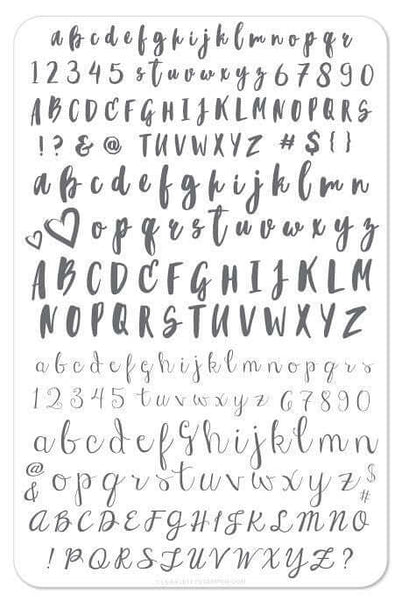 a b c d e f g h i j k l m n o p q r
1 2 3 4 5 s t u v w x y z 6 7 8 9 0
A B C D E F G H I J K L M N O P Q R S
! ? & @ T U V W X Y Z # $ { }
a b c d e f g h i j k l m n
o p q r s t u v w x y z
A B C D C F G H I J K L M
N O P Q R S T U V W X Y Z
a b c d e f g h i j k l m n o p q r s
1 2 3 4 5 t u v w x y z 6 7 8 9 0
a b c d e f g h i j k l m n
@ & o p q r s t u v w x y z $ #
A B C D E F G H I J K L M N O
! P Q R S T U V W X Y Z ?